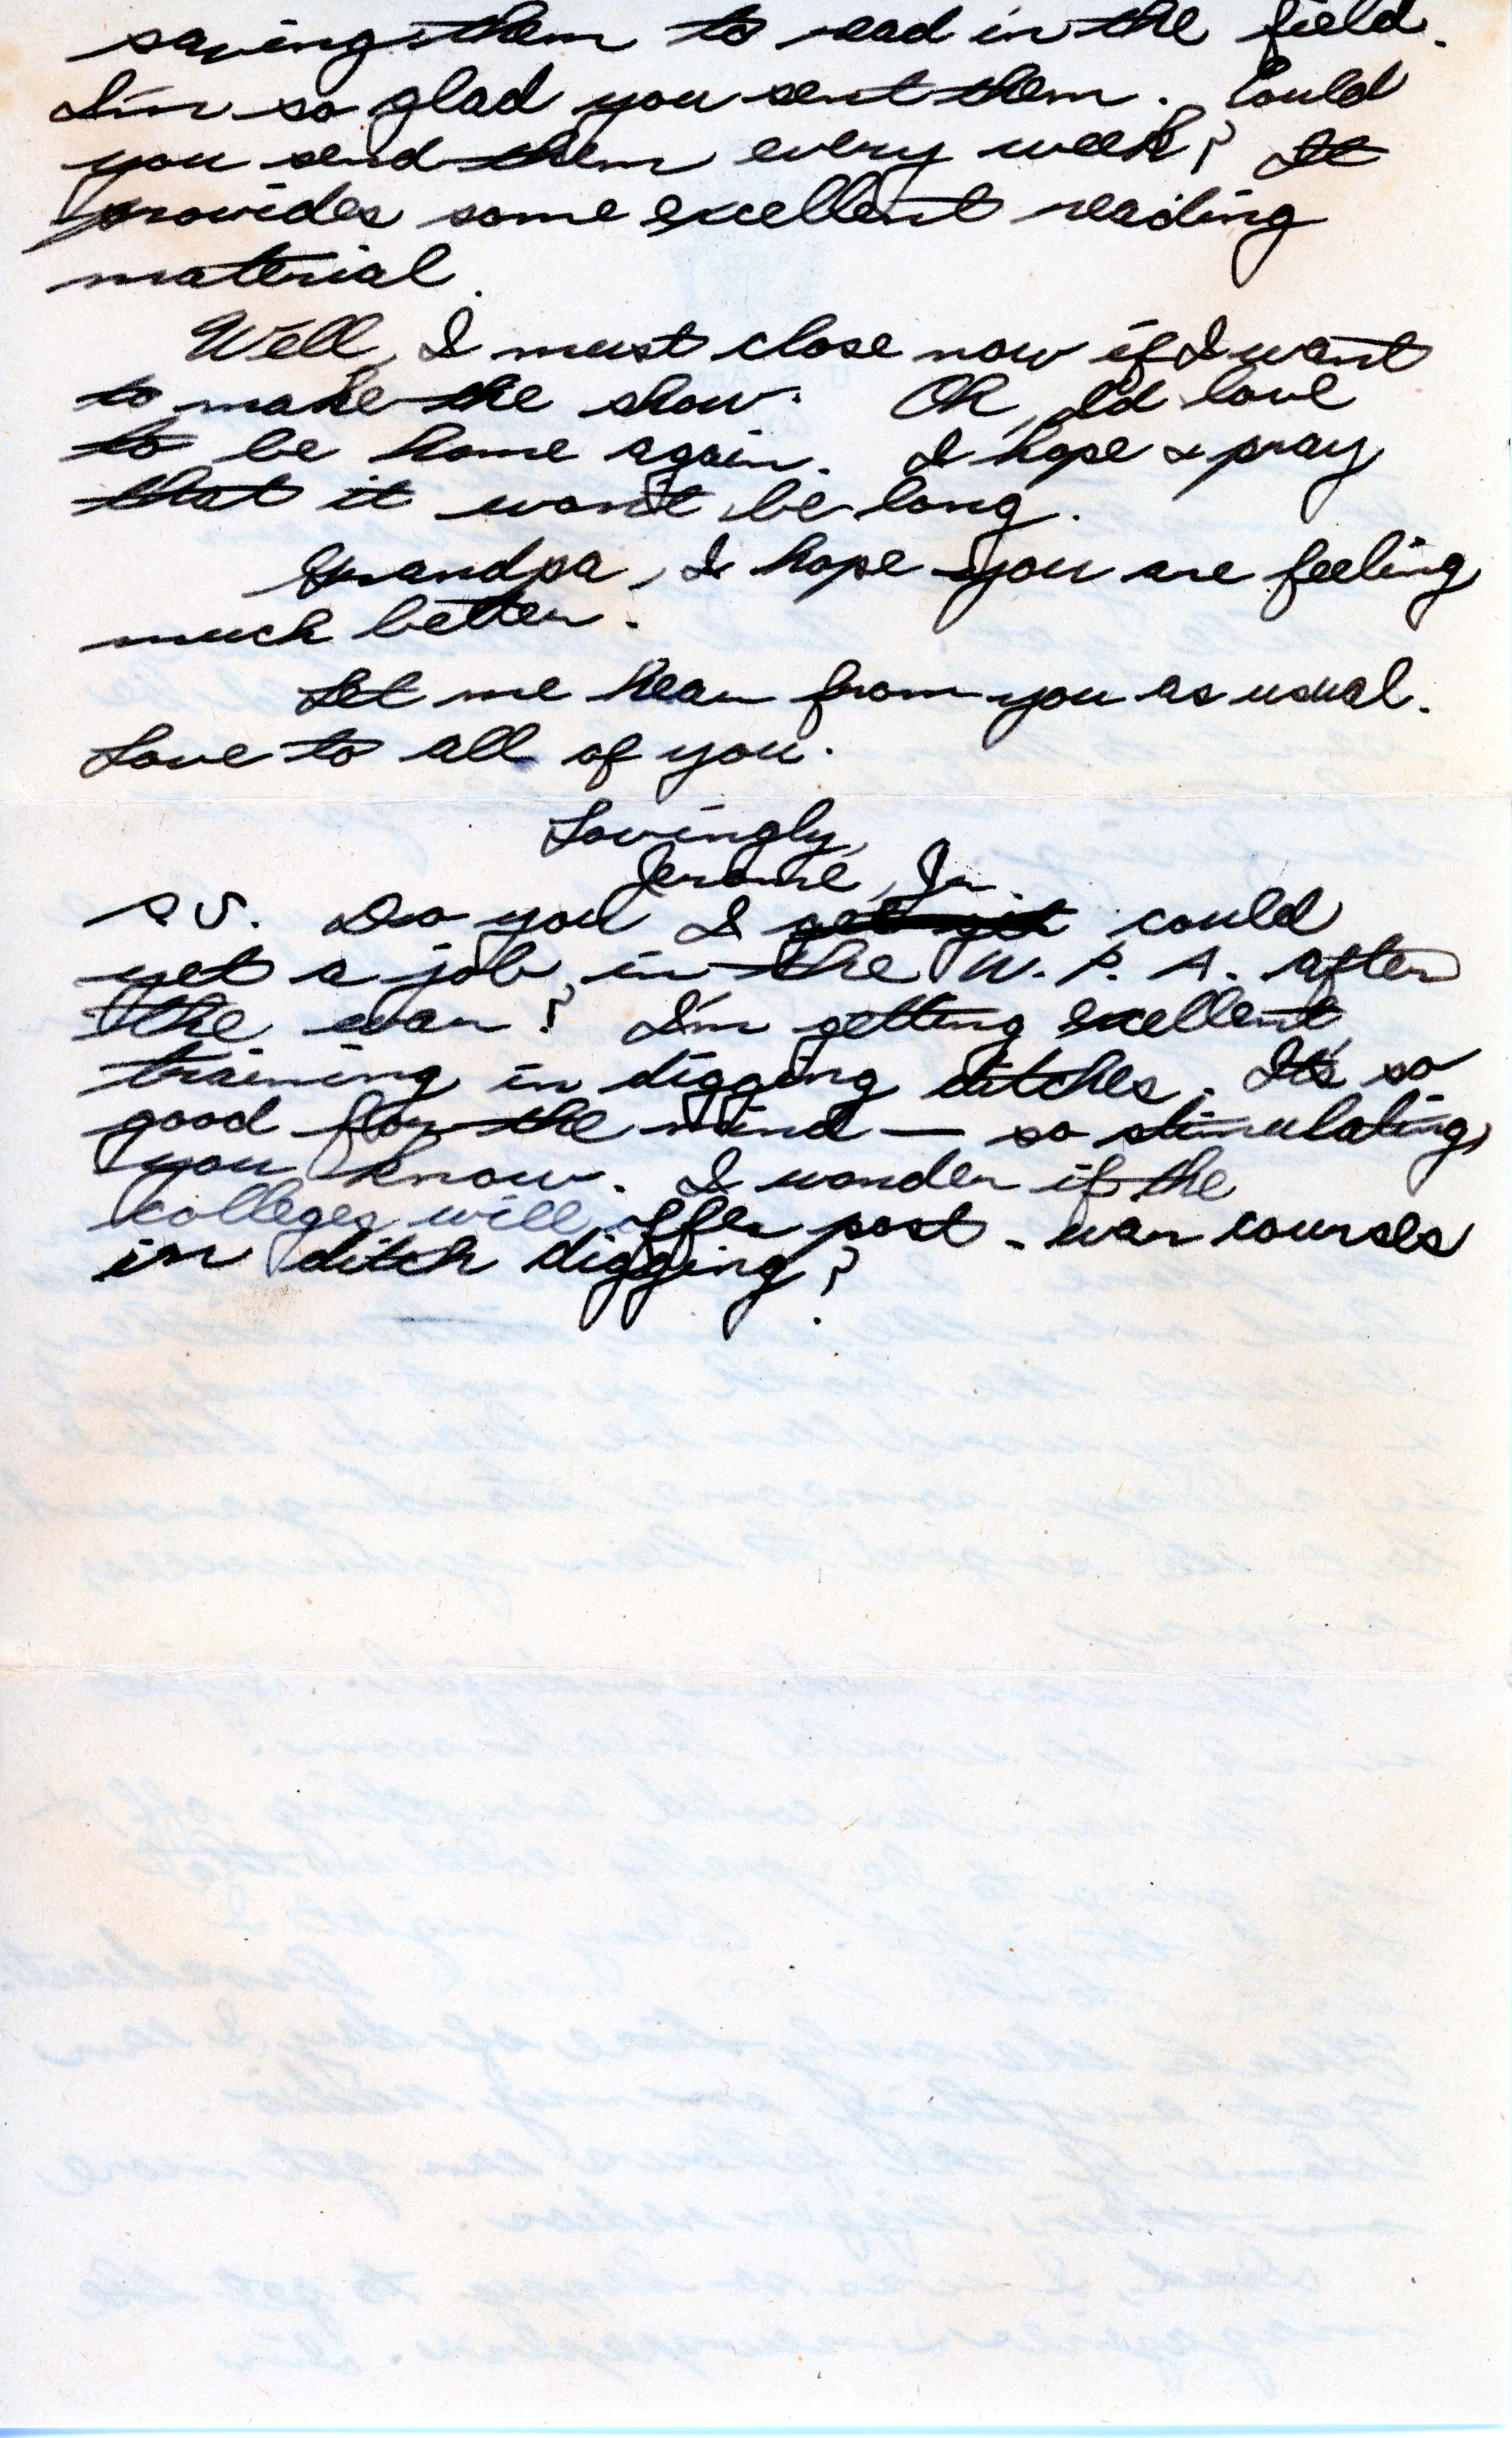 saving them to read in the field.
I'm so glad you sent them. Could
you send them every week? It
provides some excellent reading
material.
Well, I must close now if I want
to make the show. Oh, I'd love
to be home again. I hope & pray
that it won't be long.
Grandpa, I hope you are feeling
much better.
Let me hear from you as usual.
Love to all of you.
Lovingly,
Jerome, Jr.
P.S. Do you I could
get a job in the W. P. A. after
the war? I'm getting excellent
training in digging ditches. It's so
good for the mind — so stimulating,
you know. I wonder if the
colleges will offer post-war courses
in ditch digging?